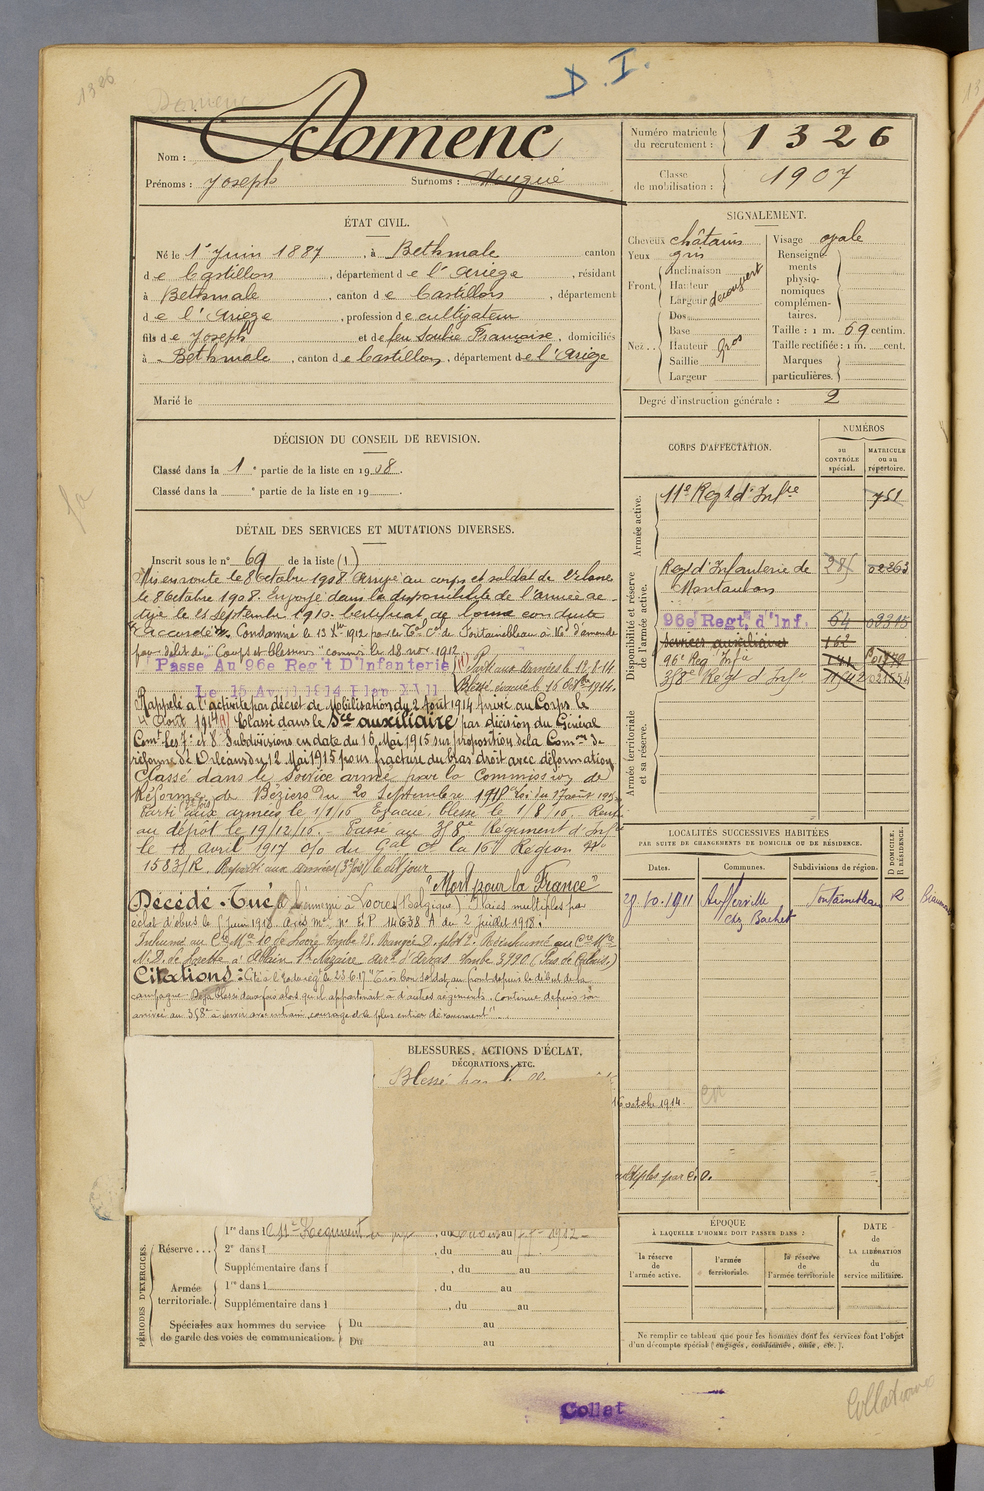 1326
Domenc
D. I.
Nom : Domenc
Prénoms : Joseph Surnoms :
Numéro matricule du recrutement : 1326
Classe de mobilisation : 1907
ÉTAT CIVIL.
Né le 1er Juin 1887, à Bethmale canton
de Castillon, département de l'Ariège, résidant
à Bethmale, canton de Castillon, département
de l'Ariège, profession de cultivateur
fils de Joseph et de feu Soulié Françoise, domiciliés
à Bethmale, canton de Castillon, département de l'Ariège
Marié le
SIGNALEMENT.
Cheveux châtains
Yeux gris
Front. Inclinaison
Hauteur
Largeur découvert
Nez.. Dos
Base
Hauteur gros
Saillie
Largeur
Visage ovale
Renseignements physionomiques complémentaires.
Taille : 1 m. 69 centim.
Taille rectifiée : 1 m. cent.
Marques particulières.
Degré d'instruction générale : 2
DÉCISION DU CONSEIL DE REVISION.
Classé dans la 1e partie de la liste en 1908.
Classé dans la e partie de la liste en 19
DÉTAIL DES SERVICES ET MUTATIONS DIVERSES.
Inscrit sous le n° 69 de la liste (1)
Mis en route le 8 Octobre 1908. Arrivé au corps et soldat de 2e classe
le 8 Octobre 1908. Envoyé dans la disponibilité de l'armée ac-
tive le 25 septembre 1910. Certificat de bonne conduite
Accordé. Condamné le 13 Xbre 1912 par le Tal Cel de Fontainebleau à 16f d'amende
pour délit de "Coups et blessures" commis le 18 nov. 1912
Passe Au 96e Reg't D'Infanterie
Le 15 Avril 1914 Plan XVII
Parti aux armées le 12.8.14
Blessé évacué le 16 Octbre 1914.
Rappelé à l'activité par décret de Mobilisation du 2 Août 1914 Arrivé au Corps le
Août 1914 Classé dans le Sce auxiliaire par décision du Général
Comt les 7e et 8e Subdivisions en date du 16 Mai 1915 sur proposition de la Comon de
réforme d'Orléans du 12 Mai 1915 pour fracture du bras droit avec déformation
Classé dans le Service armé par la Commission de
Réforme de Béziers du 20 Septembre 1915 Loi du 17 août 1915
Parti aux armées le 1/1/16 Evacué, blessé le 1/8/16. Rent
au dépôt le 19/12/16. Passé au 358e Régiment d'Infie
le 18 Avril 1917 o/o du Gal Ct la 16e Région No
1583/R. Reparti aux armées (3e fois) le dit jour
"Mort pour la France"
Décédé. Tué à l'ennemi à Loore (Belgique) Plaies multiples par
éclat d'obus le 5 juin 1918. Avis Mel No EP 14638 A du 2 Juillet 1918.
Inhumé au Cre Mre 10 de Loore tombe 25. Réinhumé au Cre Mre
N.D. de Lorette à Ablain St Nazaire arrt d'Arras tombe 3990 (Pas de Calais.)
Citations : Cité à l'ordre du régt le 23.6.17 "Très bon soldat, au front depuis le début de la
campagne. Déjà blessé deux fois alors qu'il appartenait à d'autres régiments. Continue depuis son
arrivée au 358e à servir avec entrain, courage et le plus entier dévouement".
CORPS D'AFFECTATION.
NUMÉROS
au CONTRÔLE spécial.
MATRICULE ou au répertoire.
Armée active.
11e Regt d'Infie 751
Disponibilité et réserve de l'armée active.
Regt d'Infanterie de Montauban 02263
96e Regt. d'Inf. 64 02315
Services auxiliaires 162
96e Reg Infie
358e Regt d'Infie
Armée territoriale et sa réserve.
LOCALITÉS SUCCESSIVES HABITÉES
PAR SUITE DE CHANGEMENTS DE DOMICILE OU DE RÉSIDENCE.
Dates. Communes. Subdivisions de région. D DOMICILE. R RÉSIDENCE.
29.10.1911 Aufferville Fontainebleau R
chez Bachet
BLESSURES, ACTIONS D'ÉCLAT,
DÉCORATIONS, ETC.
Blessé par
16 octobre 1914.
multiples par é.o.
PÉRIODES D'EXERCICES.
Réserve... 1re dans le 11e Régiment, du au 1912
2e dans l, du au
Supplémentaire dans l, du au
Armée territoriale. 1re dans l, du au
Supplémentaire dans l, du au
Spéciales aux hommes du service de garde des voies de communication. Du au
Du au
ÉPOQUE
À LAQUELLE L'HOMME DOIT PASSER DANS :
la réserve de l'armée active.
l'armée territoriale.
la réserve de l'armée territoriale
DATE de LA LIBÉRATION du service militaire.
Ne remplir ce tableau que pour les hommes dont les services font l'objet
d'un décompte spécial (engagés, condamnés, omis, etc.).
Collat
Collationné